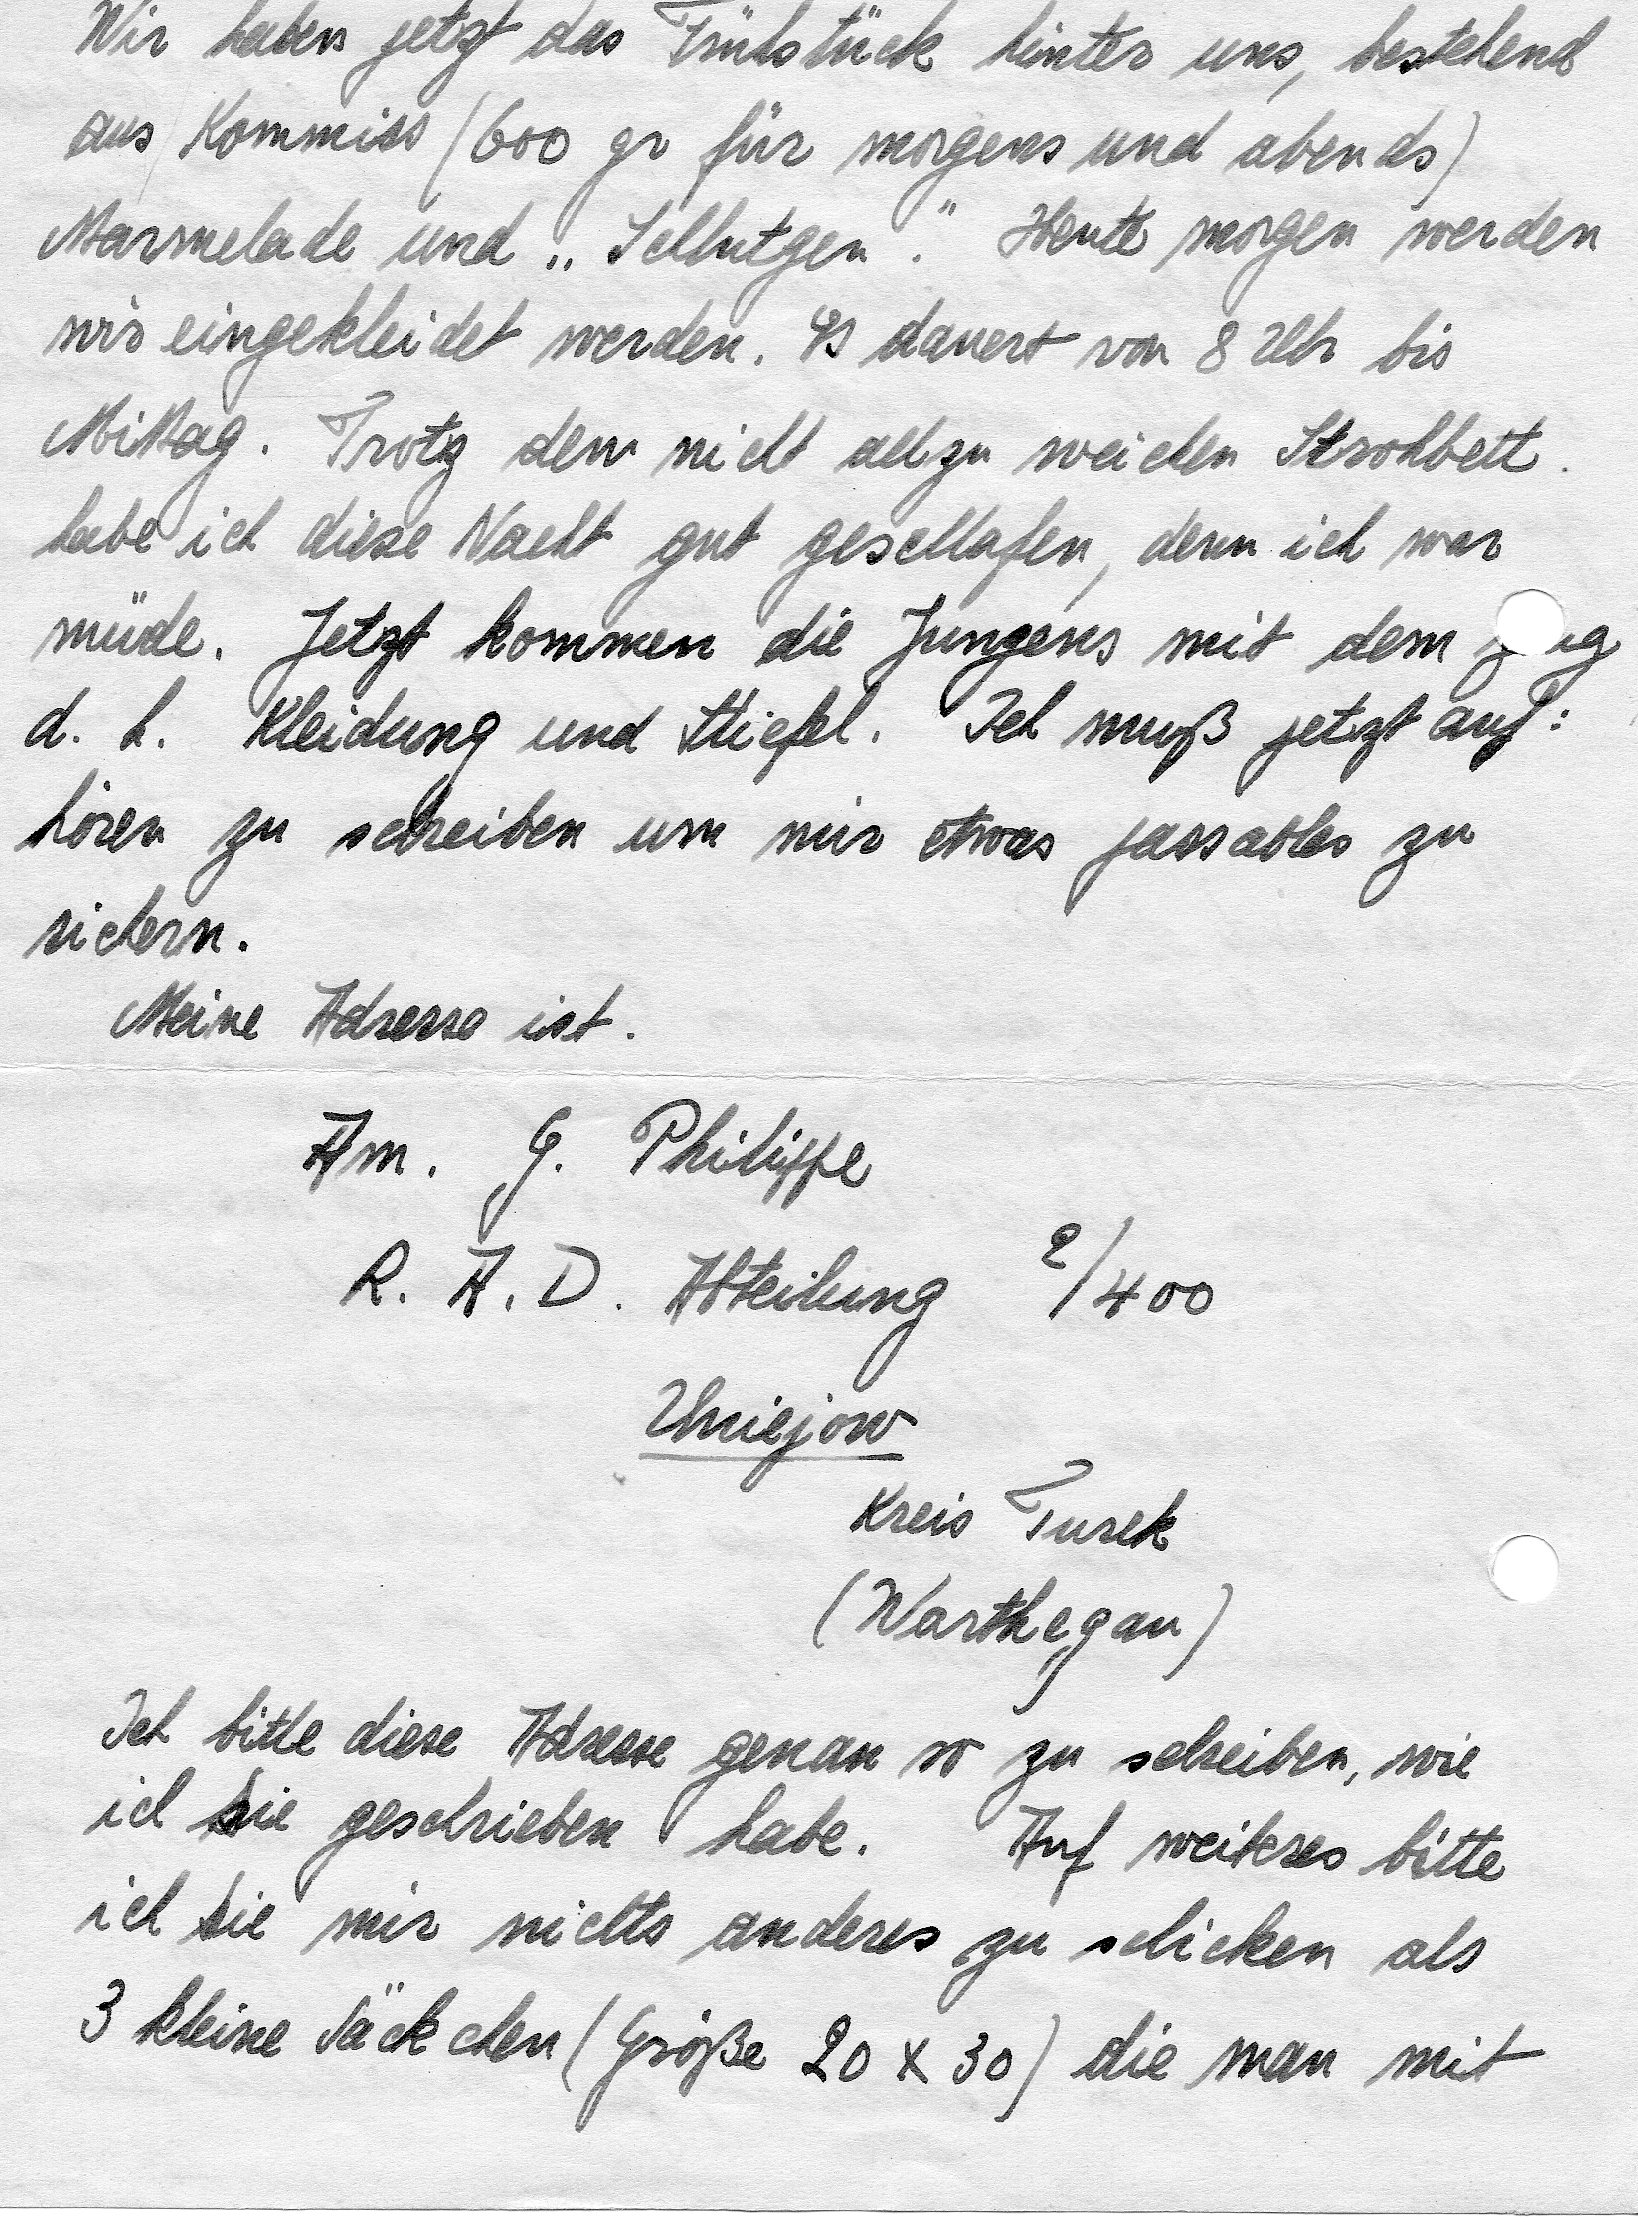 Wir haben jetzt das Frühstück hinter uns, bestehend
aus Kommiss (600 gr für morgens und abends)
Marmelade und „ ". Heute morgen werden
wir eingekleidet werden. Es dauert von 8 Uhr bis
Mittag. Trotz dem nicht allzu weichen Strohbett.
habe ich diese Nacht gut geschlafen, denn ich war
müde. Jetzt kommen die Jungens mit dem
d. h. Kleidung und Stiefel. Ich muß jetzt auf:
hören zu schreiben um mir etwas passables zu
sichern.
Meine Adresse ist.
Am. G. Philippe
R. A. D. Abteilung 2/400
Uniejow
Kreis Turek
(Warthegau)
Ich bitte diese Adresse genau so zu schreiben, wie
ich sie geschrieben habe. Auf weiteres bitte
ich Sie mir nichts anderes zu schicken als
3 kleine Säckchen (Größe 20 x 30) die man mit